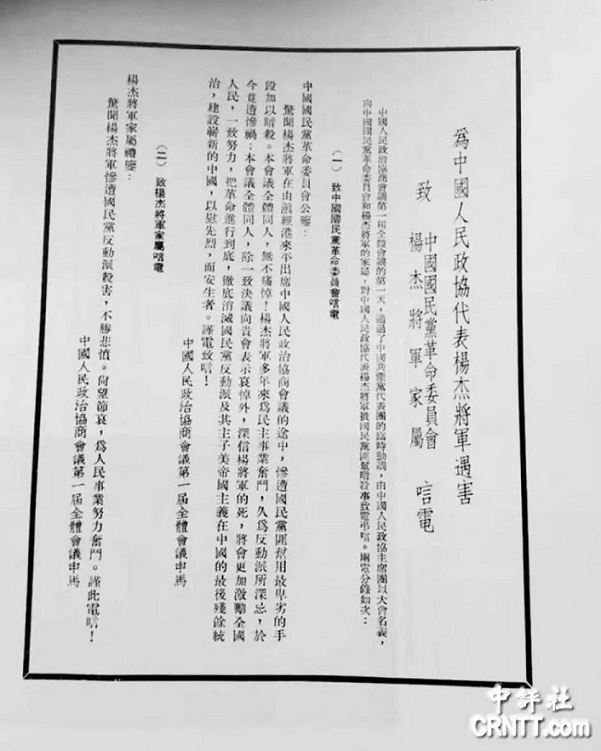 為中國人民政協代表楊杰將軍遇害
致 中國國民黨革命委員會 唁電
楊杰將軍家屬
中國人民政治協商會議第一屆全體會議的第一天，通過了中國共產黨代表團的臨時動議，由中國人民政協主席團以大會名義，
向中國國民黨革命委員會和楊杰將軍的家屬，對中國人民政協代表楊杰將軍被國民黨匪幫暗殺事致電弔唁。兩電分錄如次：
（一）致中國國民黨革命委員會唁電
中國國民黨革命委員會公鑒：
驚聞楊杰將軍在由滇經港來平出席中國人民政治協商會議的途中，慘遭國民黨匪幫用最卑劣的手
段加以暗殺。本會議全體同人，無不痛悼！楊杰將軍多年來為民主事業奮鬥，久為反動派所深忌，於
今竟遭慘禍；本會議全體同人，除一致決議向貴會表示哀悼外，深信楊將軍的死，將會更加激勵全國
人民，一致努力，把革命進行到底，徹底消滅國民黨反動派及其主子美帝國主義在中國的最後殘餘統
治，建設嶄新的中國，以慰先烈，而安生者。謹電致唁！
中國人民政治協商會議第一屆全體會議申馬
（二）致楊杰將軍家屬唁電
楊杰將軍家屬禮鑒：
驚聞楊杰將軍慘遭國民黨反動派殺害，不勝悲憤。尚望節哀，為人民事業努力奮鬥。謹此電唁！
中國人民政治協商會議第一屆全體會議申馬
中評社
CRNTT.com